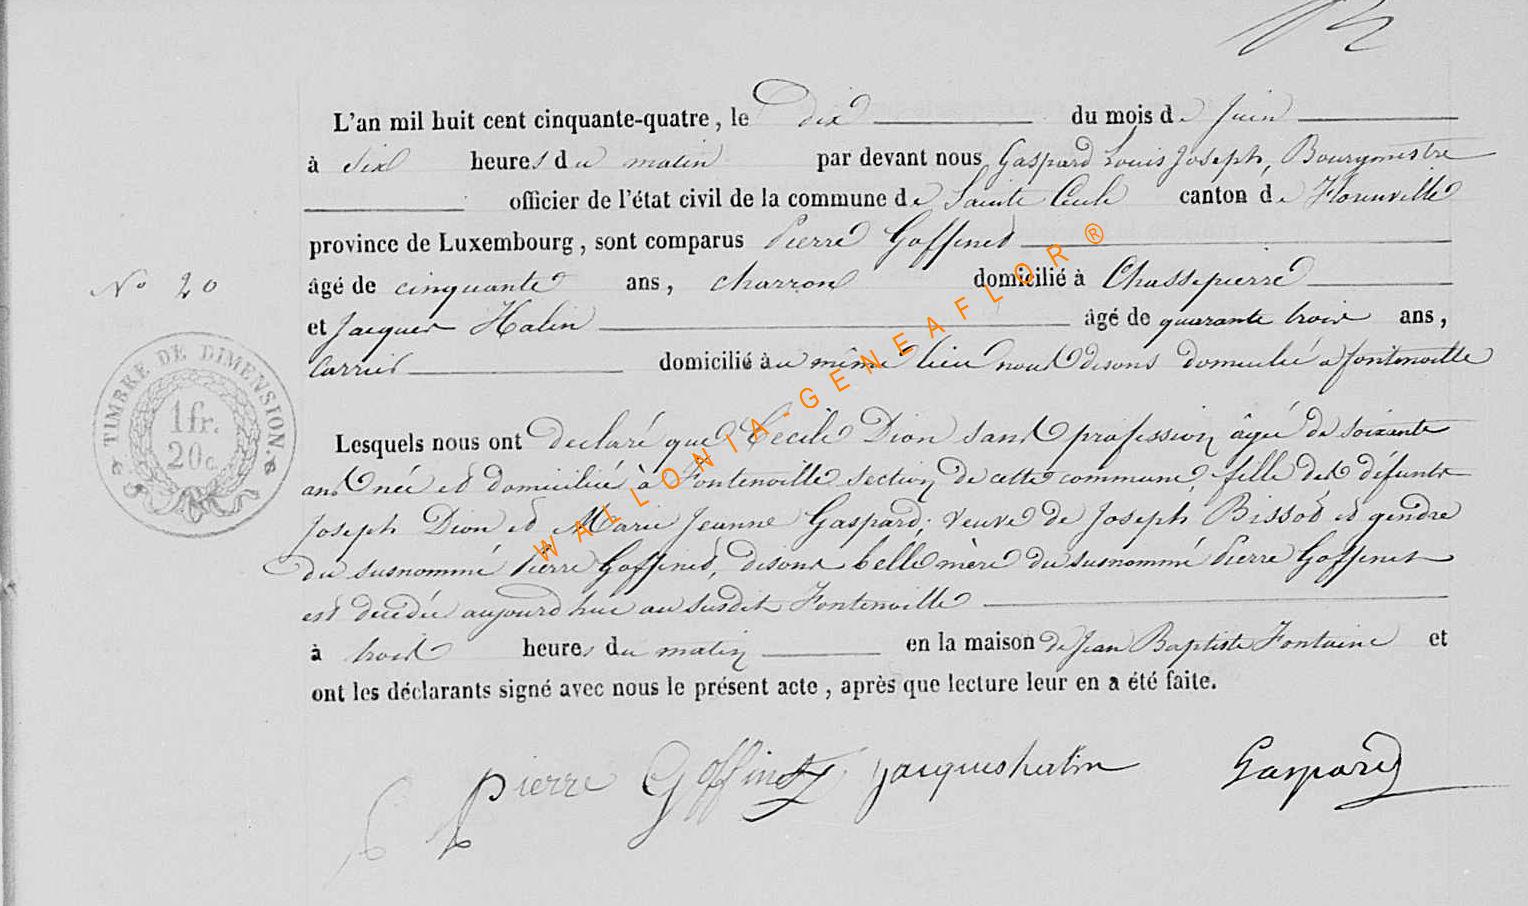 L'an mil huit cent cinquante-quatre, le dix du mois de Juin
à six heures du matin par devant nous Gaspard Louis Joseph, Bourgmestre
officier de l'état civil de la commune de Sainte Cécile canton de Florenville
province de Luxembourg, sont comparus Pierre Goffinet
âgé de cinquante ans, charron domicilié à Chassepierre
et Jacques Halin âgé de quarante trois ans,
domicilié au même lieu nous disons domicilié a fontenoille
Lesquels nous ont declaré que Cecile Dion sans profession âgée de soixante
ans née et domiciliée à Fontenoille section de cette commune, fille des défunts
Joseph Dion et Marie Jeanne Gaspard, veuve de Joseph Bissot et gendre
du susnommé Pierre Goffinet, disons belle mère du susnommé Pierre Goffinet
est decedée aujourd'hui au susdit Fontenoille
à trois heures du matin en la maison de Jean Baptiste Fontaine et
ont les déclarants signé avec nous le présent acte, après que lecture leur en a été faite.
No 20
TIMBRE DE DIMENSION.
1 fr.
20 c.
WALLONIA-GENEAFLOR ®
pierre Goffinet jacques halin Gaspard